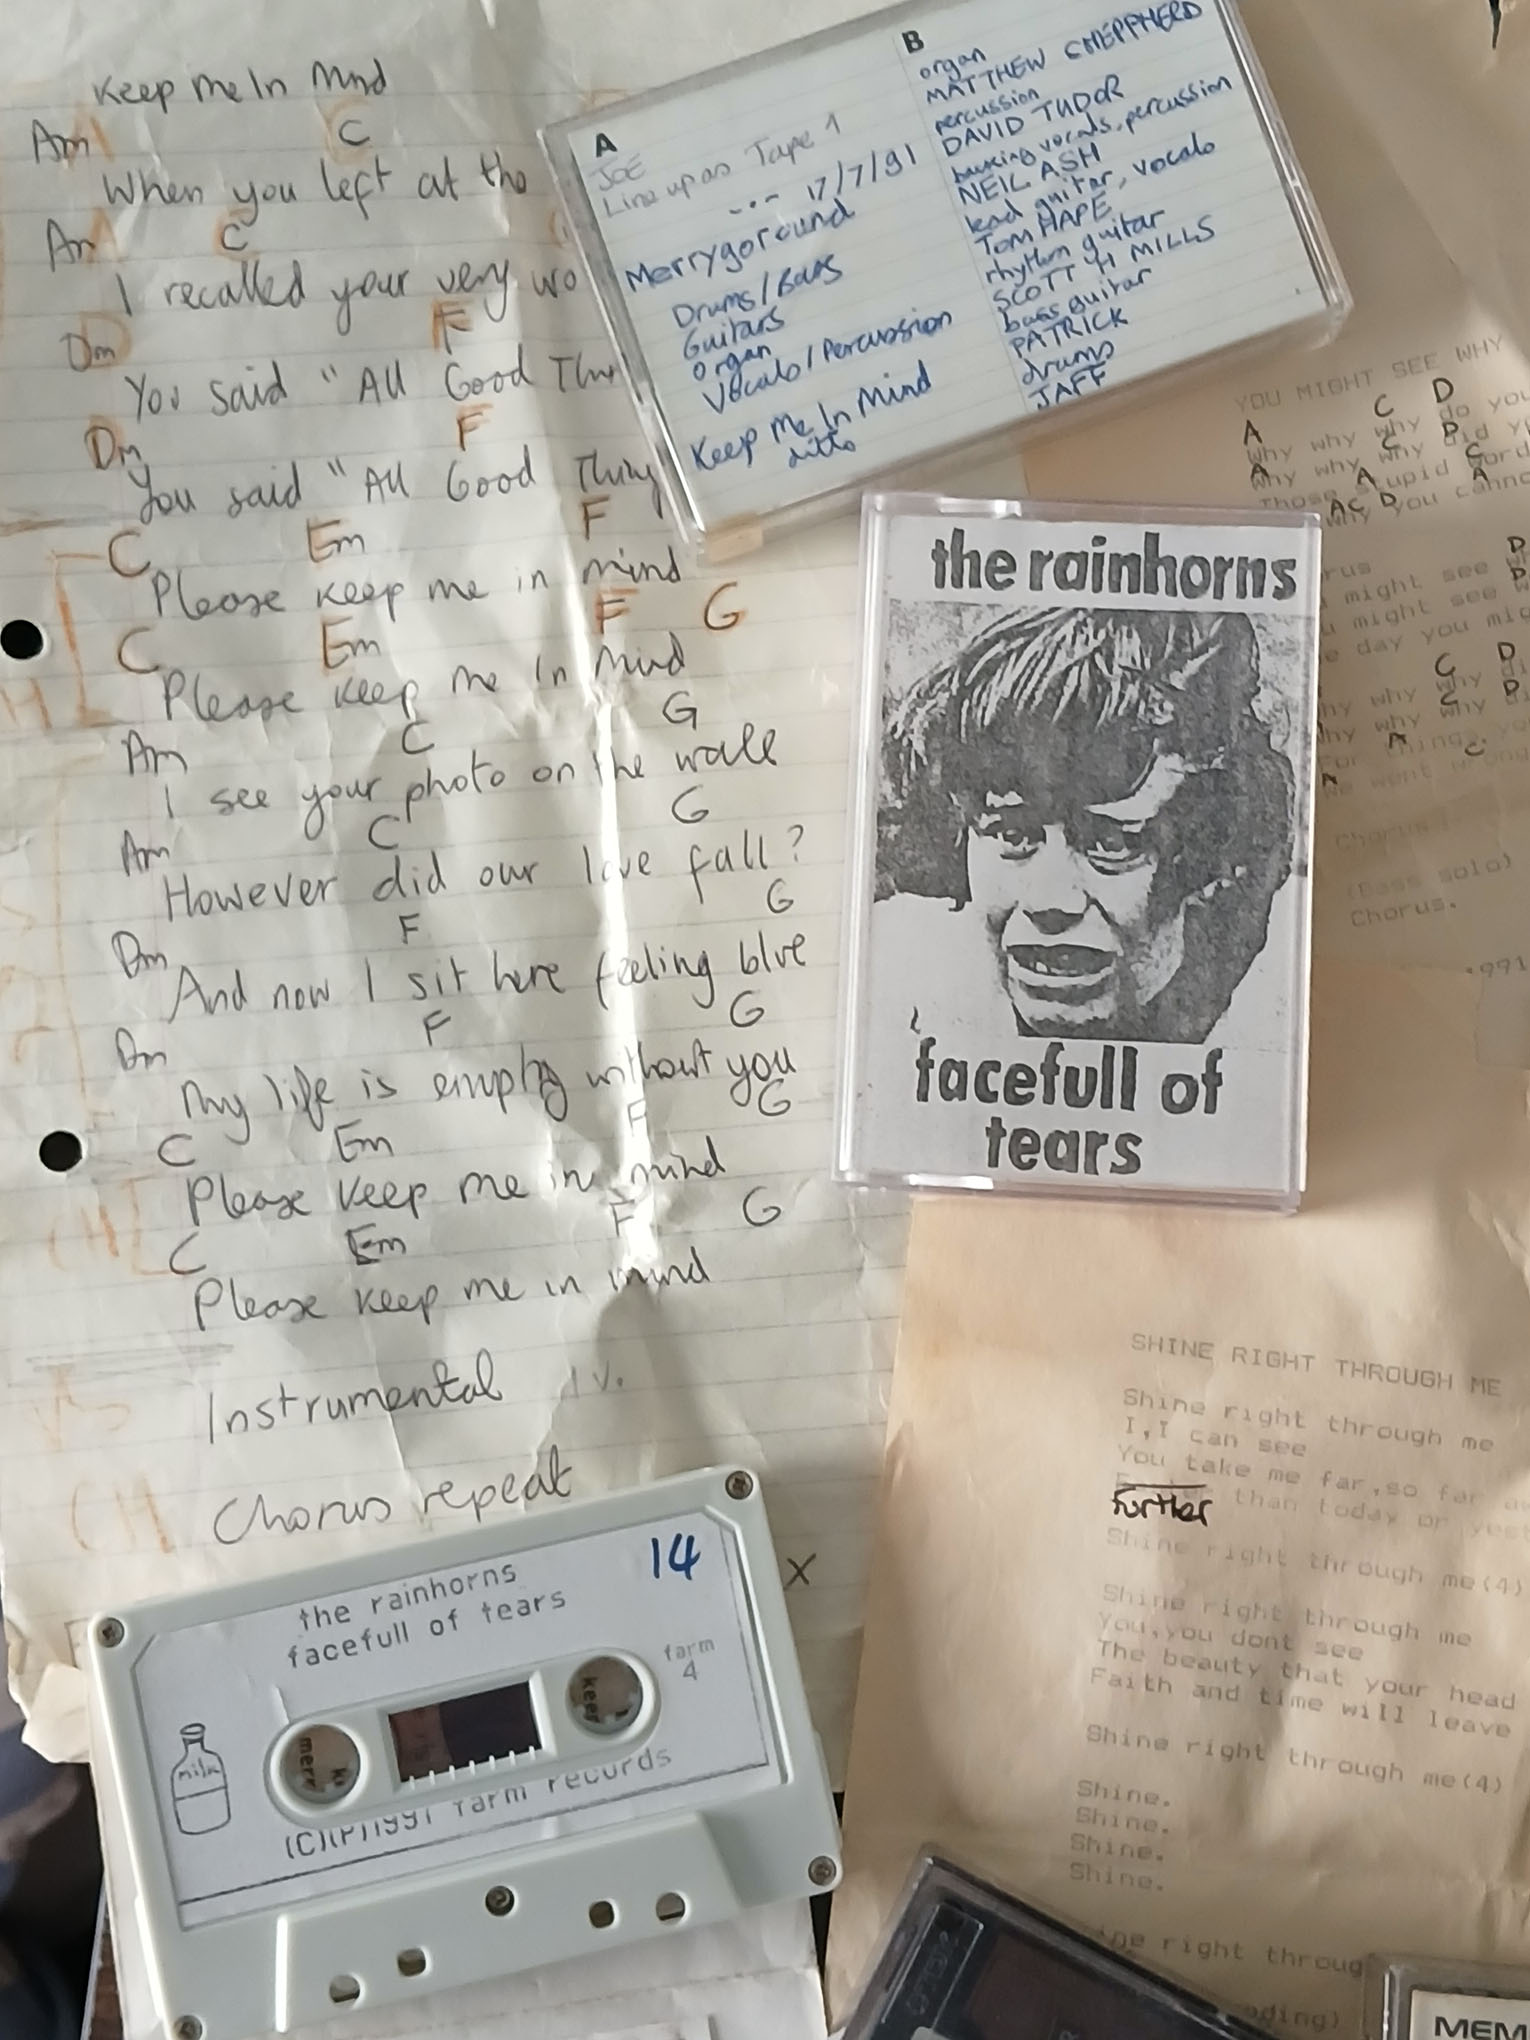 Keep Me In Mind
Am C
When you left at the
Am C
I recalled your very wo
Dm F
You said "All Good Thin
Dm F
You said "All Good Thing
C Em F
Please keep me in mind
C Em F G
Please keep me In Mind
Am C G
I see your photo on the wall
Am C G
However did our love fall?
Dm F G
And now I sit here feeling blue
Dm F G
My life is empty without you
C Em F G
Please keep me in mind
C Em F G
Please keep me in mind
Instrumental IV.
CH Chorus repeat
X
A
JOE
Line up as Tape 1
--- 17/7/91
Merrygoround
Drums/Bass
Guitars
Organ
Vocals/Percussion
Keep Me In Mind
ditto
B
organ
MATTHEW CHEPPHERD
percussion
DAVID TUDOR
backing vocals, percussion
NEIL ASH
lead guitar, vocals
TOM HAPE
rhythm guitar
SCOTT H MILLS
bass guitar
PATRICK
drums
JAFF
the rainhorns
facefull of
tears
YOU MIGHT SEE WHY
C D
A
Why why why do you
C D
Why why why did y
A A C A
Those stupid word
A C D
why you canno
D
rus
might see w
D
u might see w
e day you mig
C D
hy why why di
C D
hy why why di
A C
For things, yo
A
We went wrong
Chorus
(Bass solo)
Chorus.
.991
SHINE RIGHT THROUGH ME
Shine right through me
I,I can see
You take me far,so far aw
further than today or yest
Shine right through me(4)
Shine right through me
You,you dont see
The beauty that your head
Faith and time will leave
Shine right through me(4)
Shine.
Shine.
Shine.
Shine.
ine right throug
ding)
14
the rainhorns
facefull of tears
farm
4
milk
merr
keep
(C)(P)1991 farm records
MEM